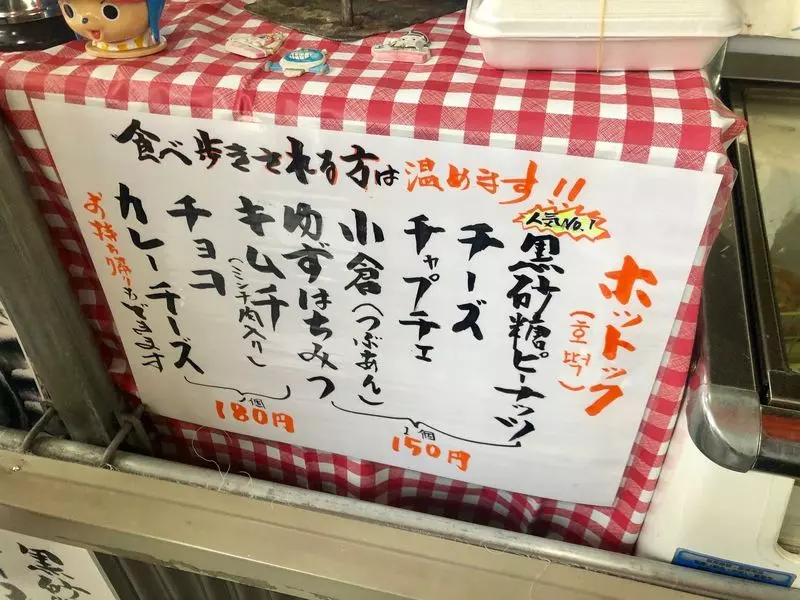 食べ歩きされる方は温めます!!
ホットック
(호떡)
人気No.1
黒砂糖ピーナッツ
チーズ
チャプチェ
小倉(つぶあん)
ゆずはちみつ
1個
150円
キムチ
(ミンチ肉入り)
チョコ
カレーチーズ
1個
180円
お持ち帰りもできます
黒砂